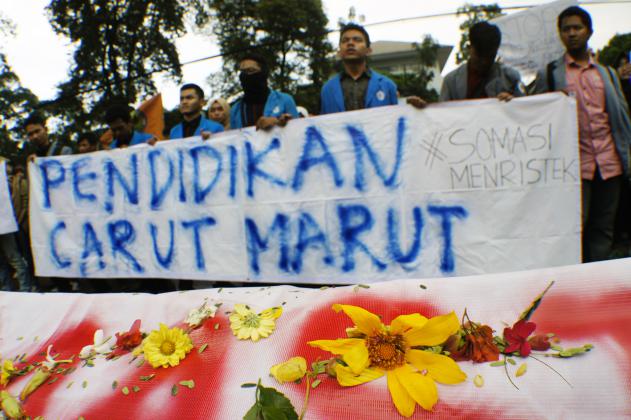 PENDIDIKAN
CARUT MARUT
#SOMASI
MENRISTEK